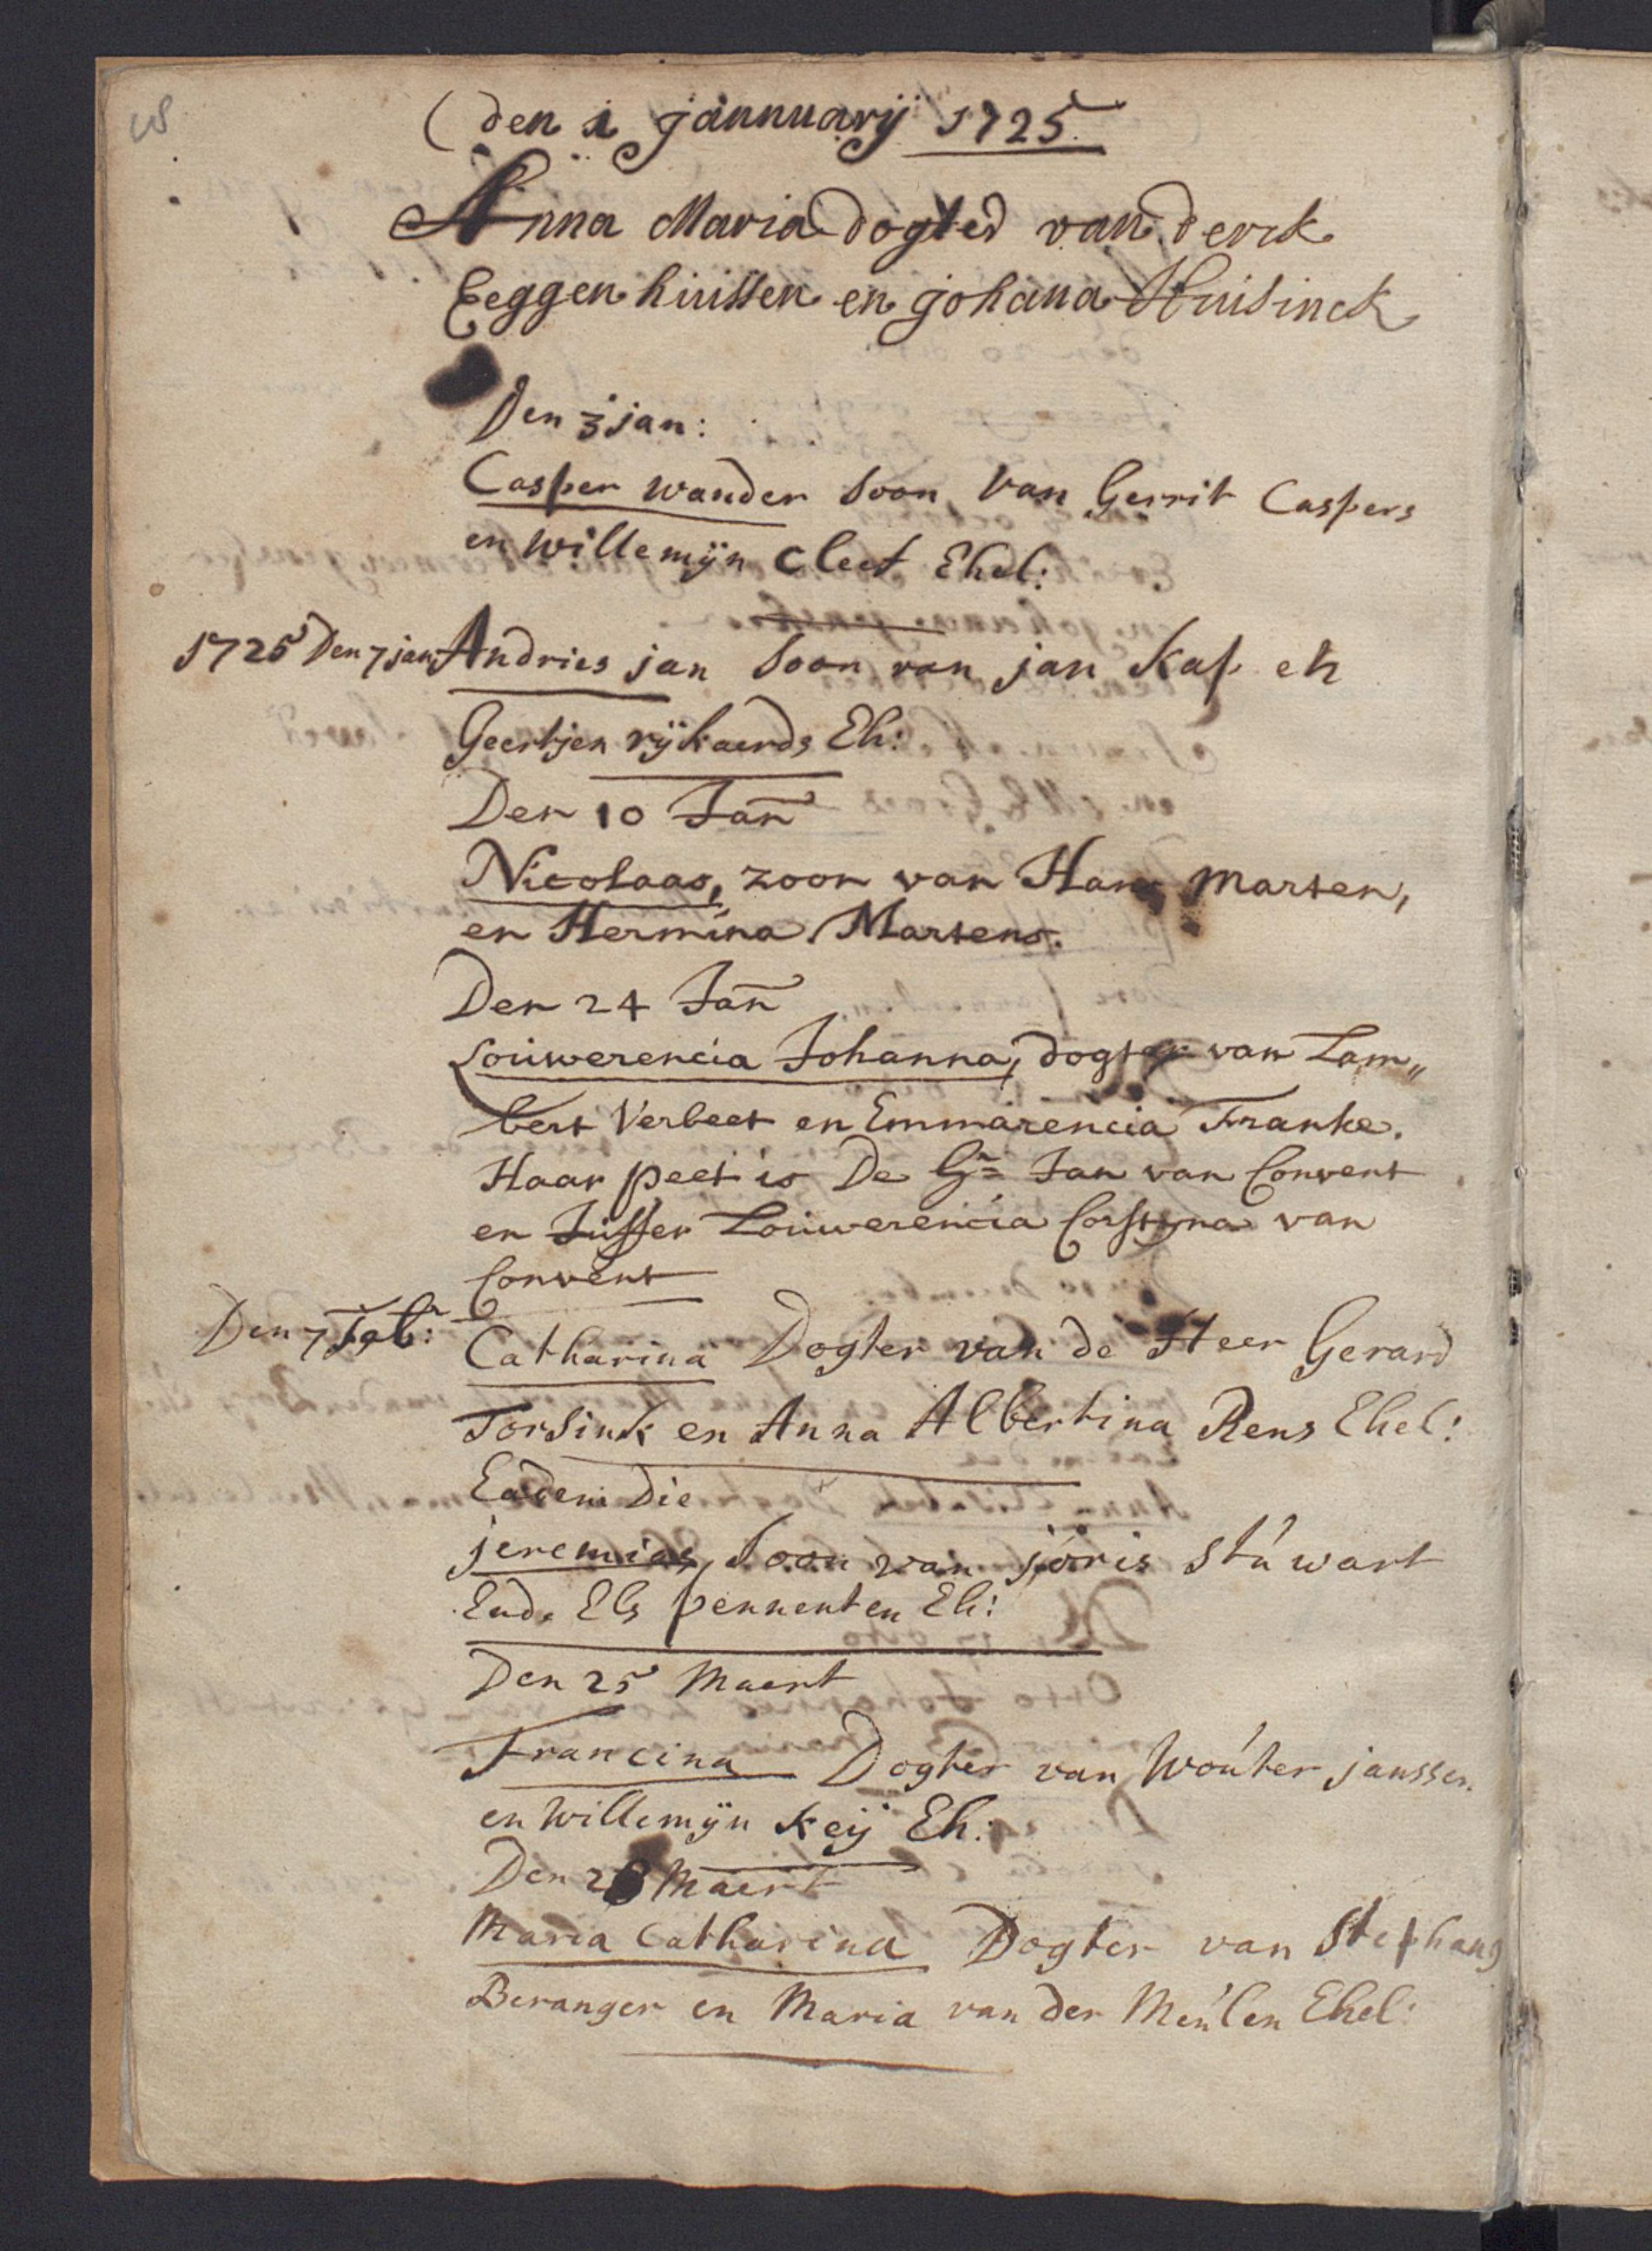 den 1 jannuarij 1725
Anna Maria dogter van derck
Eeggen huissen en johana Huisinck
Den 3 jan:
Casper wander soon van Gerrit Caspers
en willemijn Cleet Ehel:
1725 Den 7 jan Andries jan soon van jan Kap en
Geertjen rijkaerds Eh:
Den 10 Jan
Nicolaas, zoon van Hans Marten,
en Hermina Martens.
Den 24 Jan
Louwerencia Johanna, dogter van Lam„
bert Verbeet en Emmarencia Franke.
Haar peet is De Jan van Convent
en Juffer Louwerencia Corstyna van
Convent
Den 7 Feb: Catharina Dogter van de Heer Gerard
Torsink en Anna Albertina Rens Ehel:
Eadem Die
jeremias, soon van joris stuwart
Ende Els pennenten Eh:
Den 25 Maert
Francina Dogter van Wouter janssen
en willemijn Keij Eh:
Den 28 Maert
Maria Catharina Dogter van Stephang
Beranger en Maria van der Meulen Ehel: